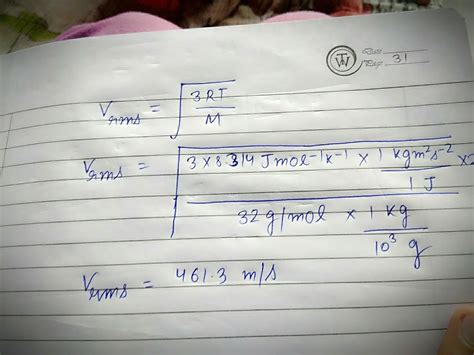 TW Date
Page 31
Vrms = √3RT/M
Vrms = √3 × 8.314 Jmol⁻¹K⁻¹ × 1 kgm²s⁻²/1 J × 2
32 g/mol × 1 kg/10³ g
Vrms = 461.3 m/s